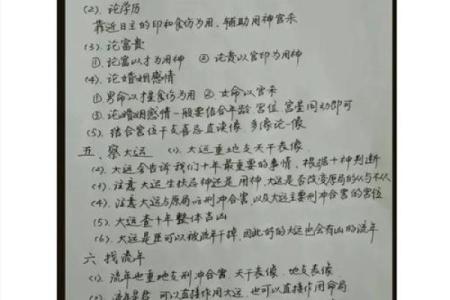 (2). 论学历
靠近日主的印和食伤为用, 辅助用神宫来
(3). 论富贵
①. 论富以才为用神 ② 论贵以官印为用神
(4). 论婚姻感情
①男命以才星食伤为用 ② 女命以官来
③. 论婚姻感情一般要结合年龄 宫位 宫星同动即可
(5). 结合宫位干支喜忌直读像 多像论一像
五、察大运 (1). 大运重地支 天干表像.
(2). 大运会告诉我们十年最重要的事情, 根据十神判断
(3). 注意大运生扶忌神还是用神, 大运是否改变原局的从与不从
(4). 注意大运与原局的刑冲合害, 以及大运主要刑冲合害的宫位
(5). 大运查十年整体吉凶
(6). 大运是可以被流年干掉, 因此好的大运也会有凶的流年
六 找流年
(1). 流年也重地支刑冲合害 天干表像, 地支表像
(2). 可以直接作用大运, 也可以直接作用命局